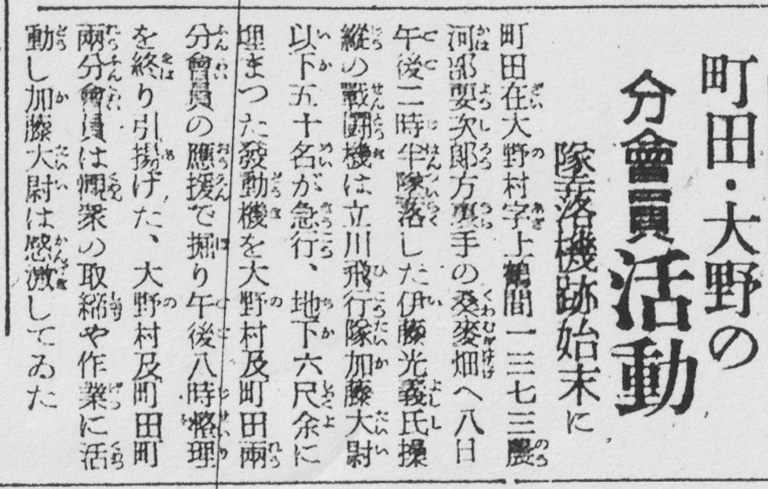 町田・大野の
分會員活動
墜落機跡始末に
町田在大野村字上鶴間一三七三農
河部要次郎方裏手の桑麥畑へ八日
午後二時半墜落した伊藤光義氏操
縱の戰鬪機は立川飛行隊加藤大尉
以下五十名が急行、地下六尺余に
埋まつた發動機を大野村及町田兩
分會員の應援で掘り午後八時整理
を終り引揚げた、大野村及町田町
兩分會員は觀衆の取締や作業に活
動し加藤大尉は感激してゐた